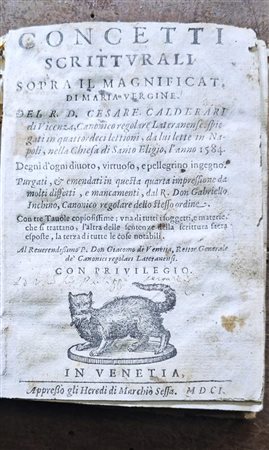 CONCETTI
SCRITTVRALI
SOPRA IL MAGNIFICAT,
DI MARIA VERGINE.
DEL R. D. CESARE CALDERARI
di Vicenza, Canonico regolare Lateranense, spie-
gati in quattordici lettioni, da lui lette in Na-
poli, nella Chiesa di Santo Eligio, l'anno 1584.
Degni d'ogni diuoto, virtuoso, e pellegrino ingegno.
Purgati, & emendati in questa quarta impressione da
molti diffetti, e mancamenti, dal R. Don Gabriello
Inchino, Canonico regolare dello stesso ordine.
Con tre Tauole copiosissime; vna di tutti i soggetti, e materie,
che si trattano, l'altra delle sentenze della scrittura sacra
esposte, la terza di tutte le cose notabili.
Al Reuerendissimo P. Don Giacomo di Venetia, Rettor Generale
de' Canonici regolari Lateranensi.
CON PRIVILEGIO.
IN VENETIA,
Appresso gli Heredi di Marchiò Sessa. MDCI.